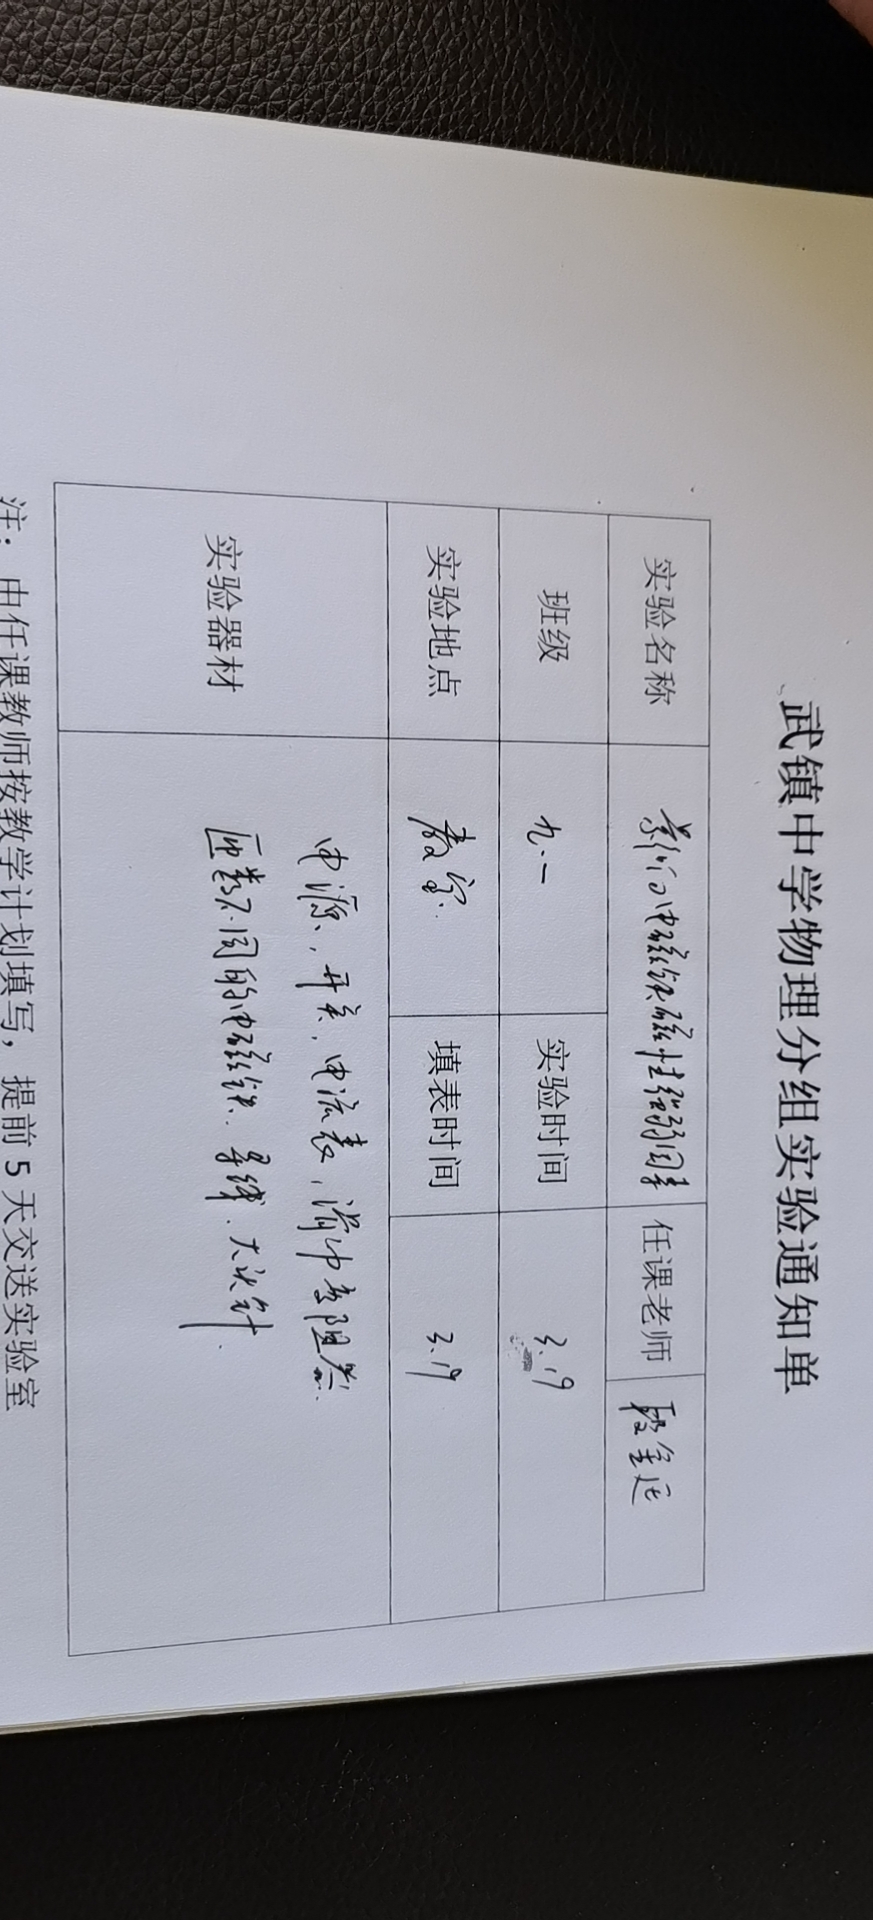 武镇中学物理分组实验通知单
实验名称 影响电磁铁磁性强弱因素 任课老师 段金运
班级 九.一 实验时间 3.19
实验地点 教室. 填表时间 3.19
实验器材 电源、开关、电流表、滑动变阻器.
匝数不同的电磁铁、导线、大头针.
注：由任课教师按教学计划填写，提前5天交送实验室